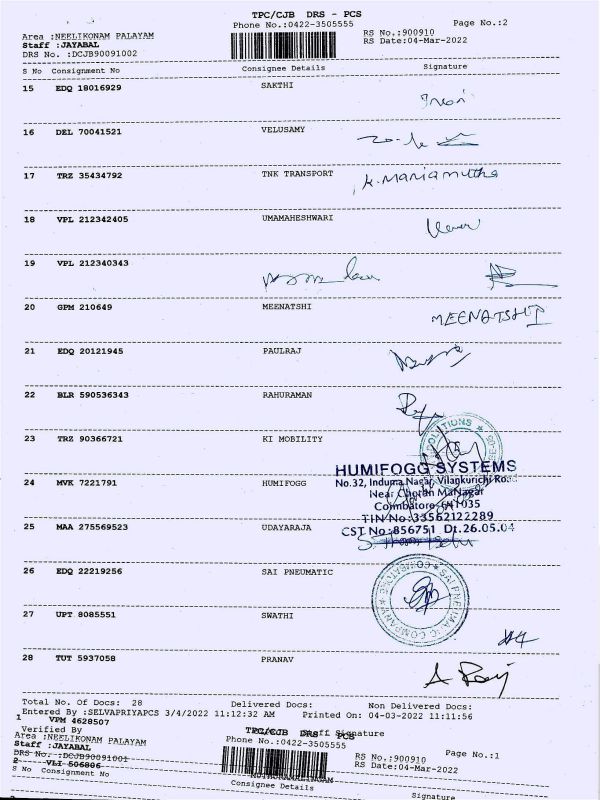 TPC/CJB DRS - PCS
Phone No.:0422-3505555
Page No.:2
Area :NEELIKONAM PALAYAM
RS No.:900910
Staff :JAYABAL
RS Date:04-Mar-2022
DRS No. :DCJB90091002
S No Consignment No Consignee Details Signature
15 EDQ 18016929 SAKTHI
16 DEL 70041521 VELUSAMY
17 TRZ 35434792 TNK TRANSPORT
K. Mariamuthu
18 VPL 212342405 UMAMAHESHWARI
19 VPL 212340343
20 GPM 210649 MEENATSHI
MEENATSHI
21 EDQ 20121945 PAULRAJ
22 BLR 590536343 RAHURAMAN
23 TRZ 90366721 KI MOBILITY
HUMIFOGG SYSTEMS
No.32, Induma Nagar, Vilankurichi Road
24 MVK 7221791 HUMIFOGG
Near Cheran MaNagar
Coimbatore-641035
TIN No:33562122289
25 MAA 275569523 UDAYARAJA
CST No:856751 Dt.26.05.04
26 EDQ 22219256 SAI PNEUMATIC
SAI PNEUMATIC COMPANY
27 UPT 8085551 SWATHI
28 TUT 5937058 PRANAV
A Raj
Total No. Of Docs: 28 Delivered Docs: Non Delivered Docs:
Entered By :SELVAPRIYAPCS 3/4/2022 11:12:32 AM Printed On: 04-03-2022 11:11:56
1 VPM 4628507
Verified By
Staff Signature
TPC/CJB DRS PCS
Area :NEELIKONAM PALAYAM
Phone No.:0422-3505555
Page No.:1
Staff :JAYABAL
RS No.:900910
DRS No. :DCJB90091001
RS Date:04-Mar-2022
2 VLI 506806
S No Consignment No Consignee Details Signature